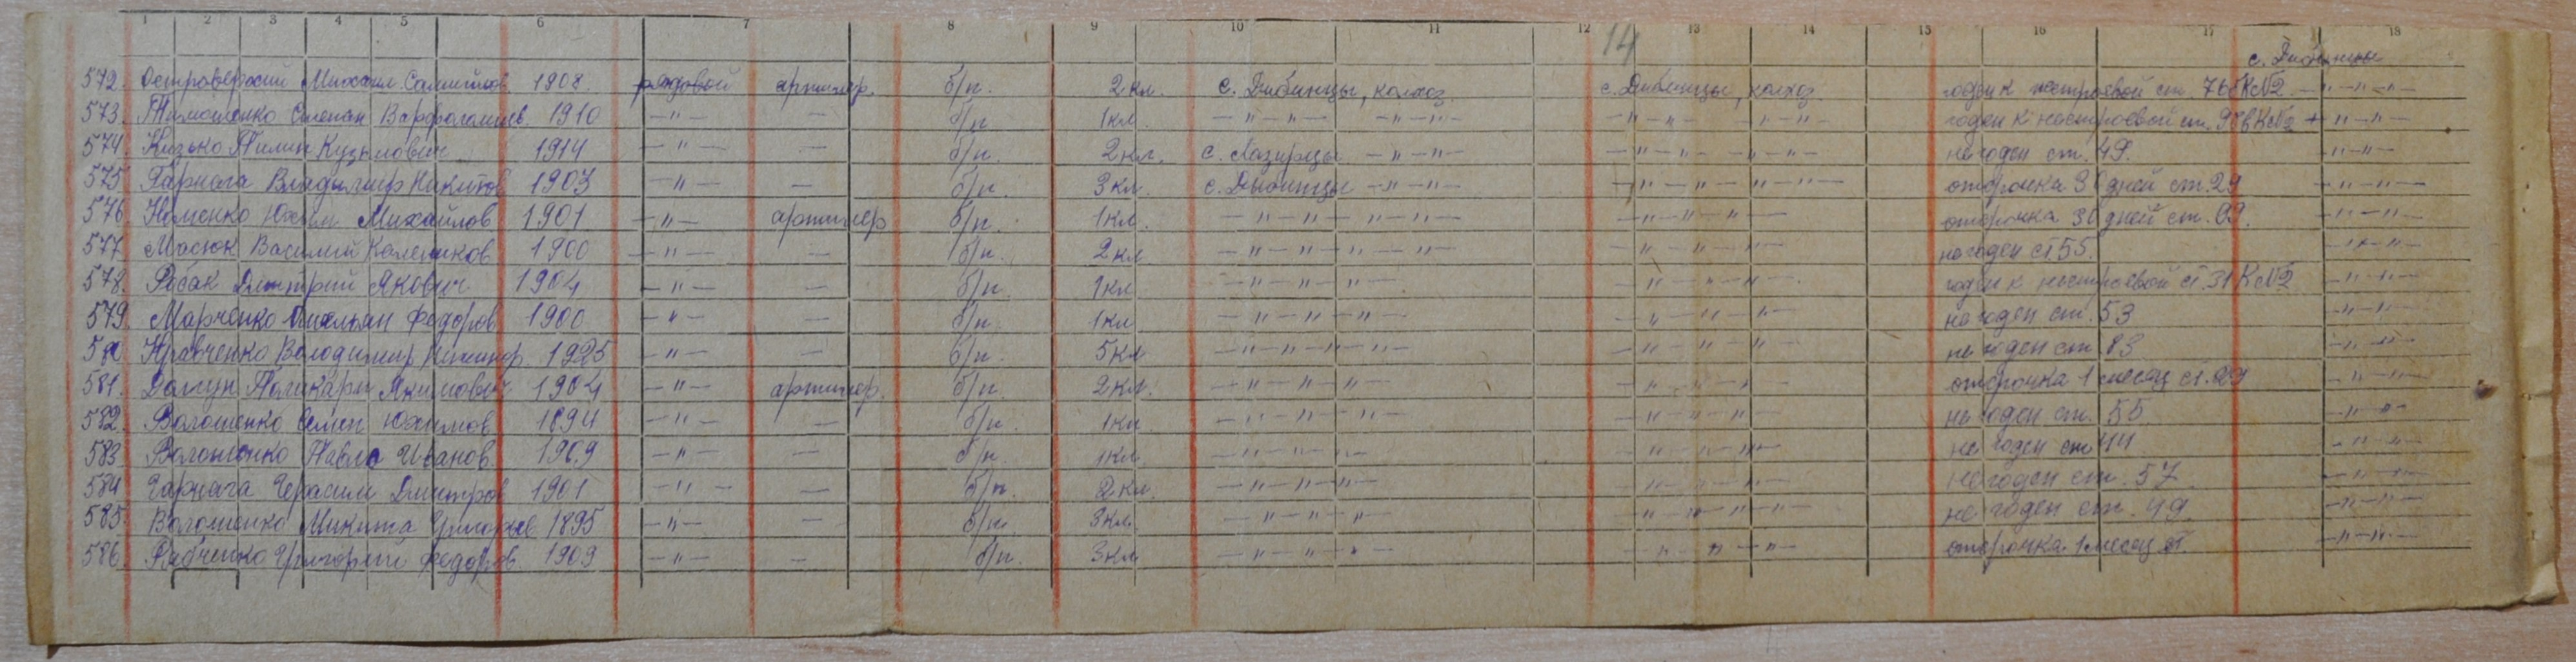 1 2 3 4 5 6 7 8 9 10 11 12 13 14 15 16 17 18
14
с. Дибинцы
572. Островерхий Михаил Самийлов 1908. рядовой артилер. б/п. 2 кл. с. Дибинцы, колхоз. с. Дибинцы, колхоз. годен к нестроевой ст. 76 б К №2 -"-"-"-
573. Тимошенко Степан Варфоломиев. 1910 -"- - б/п 1 кл. -"-"-"- -"-"- -"-"- -"-"- годен к нестроевой ст. 98 в К №2 -"-"-
574. Кузьмович 1914 -"- - б/п. 2 кл. с. -"-"- -"-"-"-"- не годен ст. 49. -"-"-
575 Гарнага Владимир Никитов 1903 -"- - б/п. 3 кл. с. Дибинцы -"-"- -"-"-"-"- отсрочка 30 дней ст. 29 -"-"-
576. Юхим Михайлов 1901 -"- артилер б/п. 1 кл. -"-"-"-"- -"-"-"- отсрочка 30 дней ст. -"-"-
577 Масюк Василий 1900 -"- - б/п. 2 кл -"-"-"-"- -"-"-"- не годен ст 55. -"-"-
578. Дмитрий Якович 1904 -"- - б/п. 1 кл -"-"-"- -"-"-"- годен к нестроевой ст. 31 К №2 -"-"-
579 Марченко Федоров 1900 -"- - б/п. 1 кл -"-"-"-"- -"-"-"- не годен ст. 53 -"-"-
580 Кравченко Володимир 1925 -"- - б/п. 5 кл -"-"-"-"- -"-"-"- не годен ст. 83 -"-"-
581. Поликарп Якимович 1904 -"- артилер. б/п. 2 кл. -"-"-"-"- -"-"-"- отсрочка 1 месяц ст. 29 -"-"-
582. Волошенко Семен Юхимов 1894 -"- - б/п. 1 кл -"-"-"-"- -"-"-"- не годен ст. 55 -"-"-
583. Волошенко Павло Иванов. 1909 -"- - б/п. 1 кл -"-"-"- -"-"-"- не годен ст 44 -"-"-
584 Гарнага Герасим Дмитров 1901 -"- - б/п. 2 кл. -"-"-"- -"-"-"- не годен ст. 57. -"-"-
585. Волошенко Микита Григорьев. 1895 -"- - б/п. 3 кл. -"-"-"- -"-"-"-"- не годен ст. 49 -"-"-
586. Григорий Федоров 1909 -"- - б/п. 3 кл -"-"-"- -"-"-"- отсрочка 1 месяц -"-"-